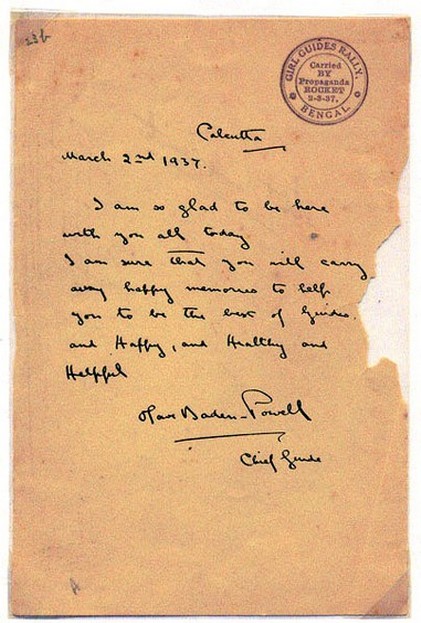 23b
GIRL GUIDES RALLY,
Carried
BY
Propaganda
ROCKET
2-3-37.
BENGAL
Calcutta
March 2nd 1937.
I am so glad to be here
with you all today
I am sure that you will carry
away happy memories to help
you to be the best of Guides.
and Happy, and Healthy and
Helpful
Olave Baden-Powell
Chief Guide
A